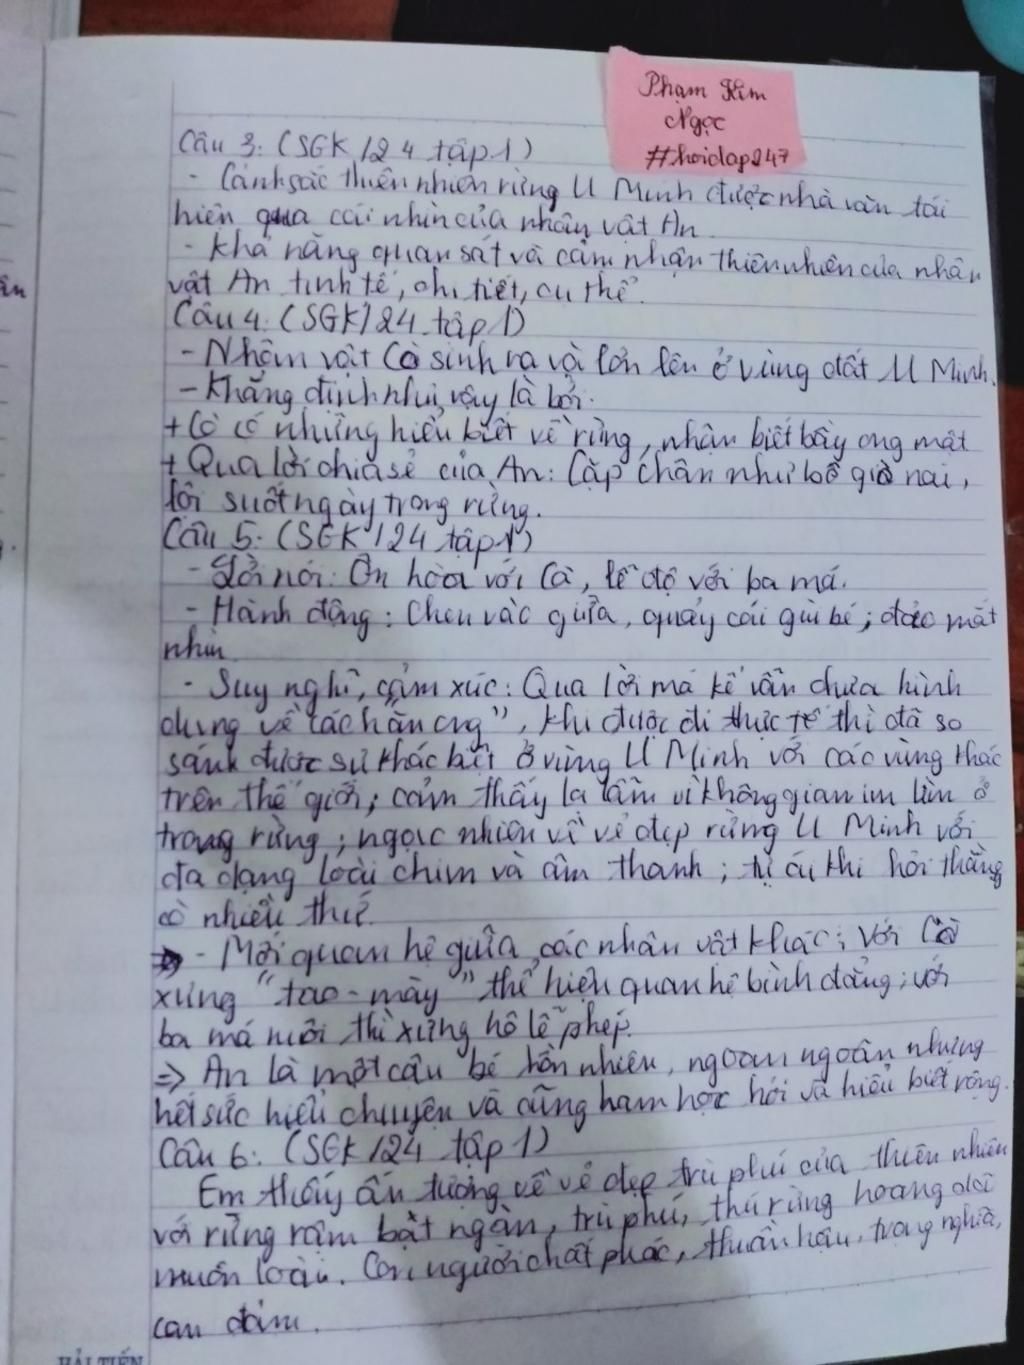 Phạm Kim
Ngọc
#hoidap247
Câu 3: (SGK/24 tập 1)
- Cảnh sắc thiên nhiên rừng U Minh được nhà văn tái
hiện qua cái nhìn của nhân vật An.
- Khả năng quan sát và cảm nhận thiên nhiên của nhân
vật An tinh tế, chi tiết, cụ thể.
Câu 4: (SGK/24 tập 1)
- Nhân vật Cò sinh ra và lớn lên ở vùng đất U Minh.
- Khẳng định như vậy là bởi:
+ Cò có những hiểu biết về rừng, nhận biết bầy ong mật
+ Qua lời chia sẻ của An: Cặp chân như bộ giò nai,
lội suốt ngày trong rừng.
Câu 5: (SGK/24 tập 1)
- Lời nói: Ôn hòa với Cò, lễ độ với ba má.
- Hành động: Chen vào giữa, quảy cái gùi bé; đảo mắt
nhìn
- Suy nghĩ, cảm xúc: Qua lời má kể vẫn chưa hình
dung về "ăn ong", khi được đi thực tế thì đã so
sánh được sự khác biệt ở vùng U Minh với các vùng khác
trên thế giới; cảm thấy lạ lẫm vì không gian im lìm ở
trong rừng; ngạc nhiên về vẻ đẹp rừng U Minh với
đa dạng loài chim và âm thanh; tự ái khi hỏi thằng
cò nhiều thứ.
- Mối quan hệ giữa các nhân vật khác: Với Cò
xưng "tao - mày" thể hiện quan hệ bình đẳng; với
ba má nuôi thì xưng hô lễ phép.
=> An là một cậu bé hồn nhiên, ngoan ngoãn nhưng
hết sức hiếu chuyện và cũng ham học hỏi và hiểu biết rộng.
Câu 6: (SGK/24 tập 1)
Em thấy ấn tượng về vẻ đẹp trù phú của thiên nhiên
với rừng rậm bạt ngàn, trù phú, thú rừng hoang dã
muôn loài. Con người chất phác, thuần hậu, trọng nghĩa,
can đảm.
HẢI TIẾN